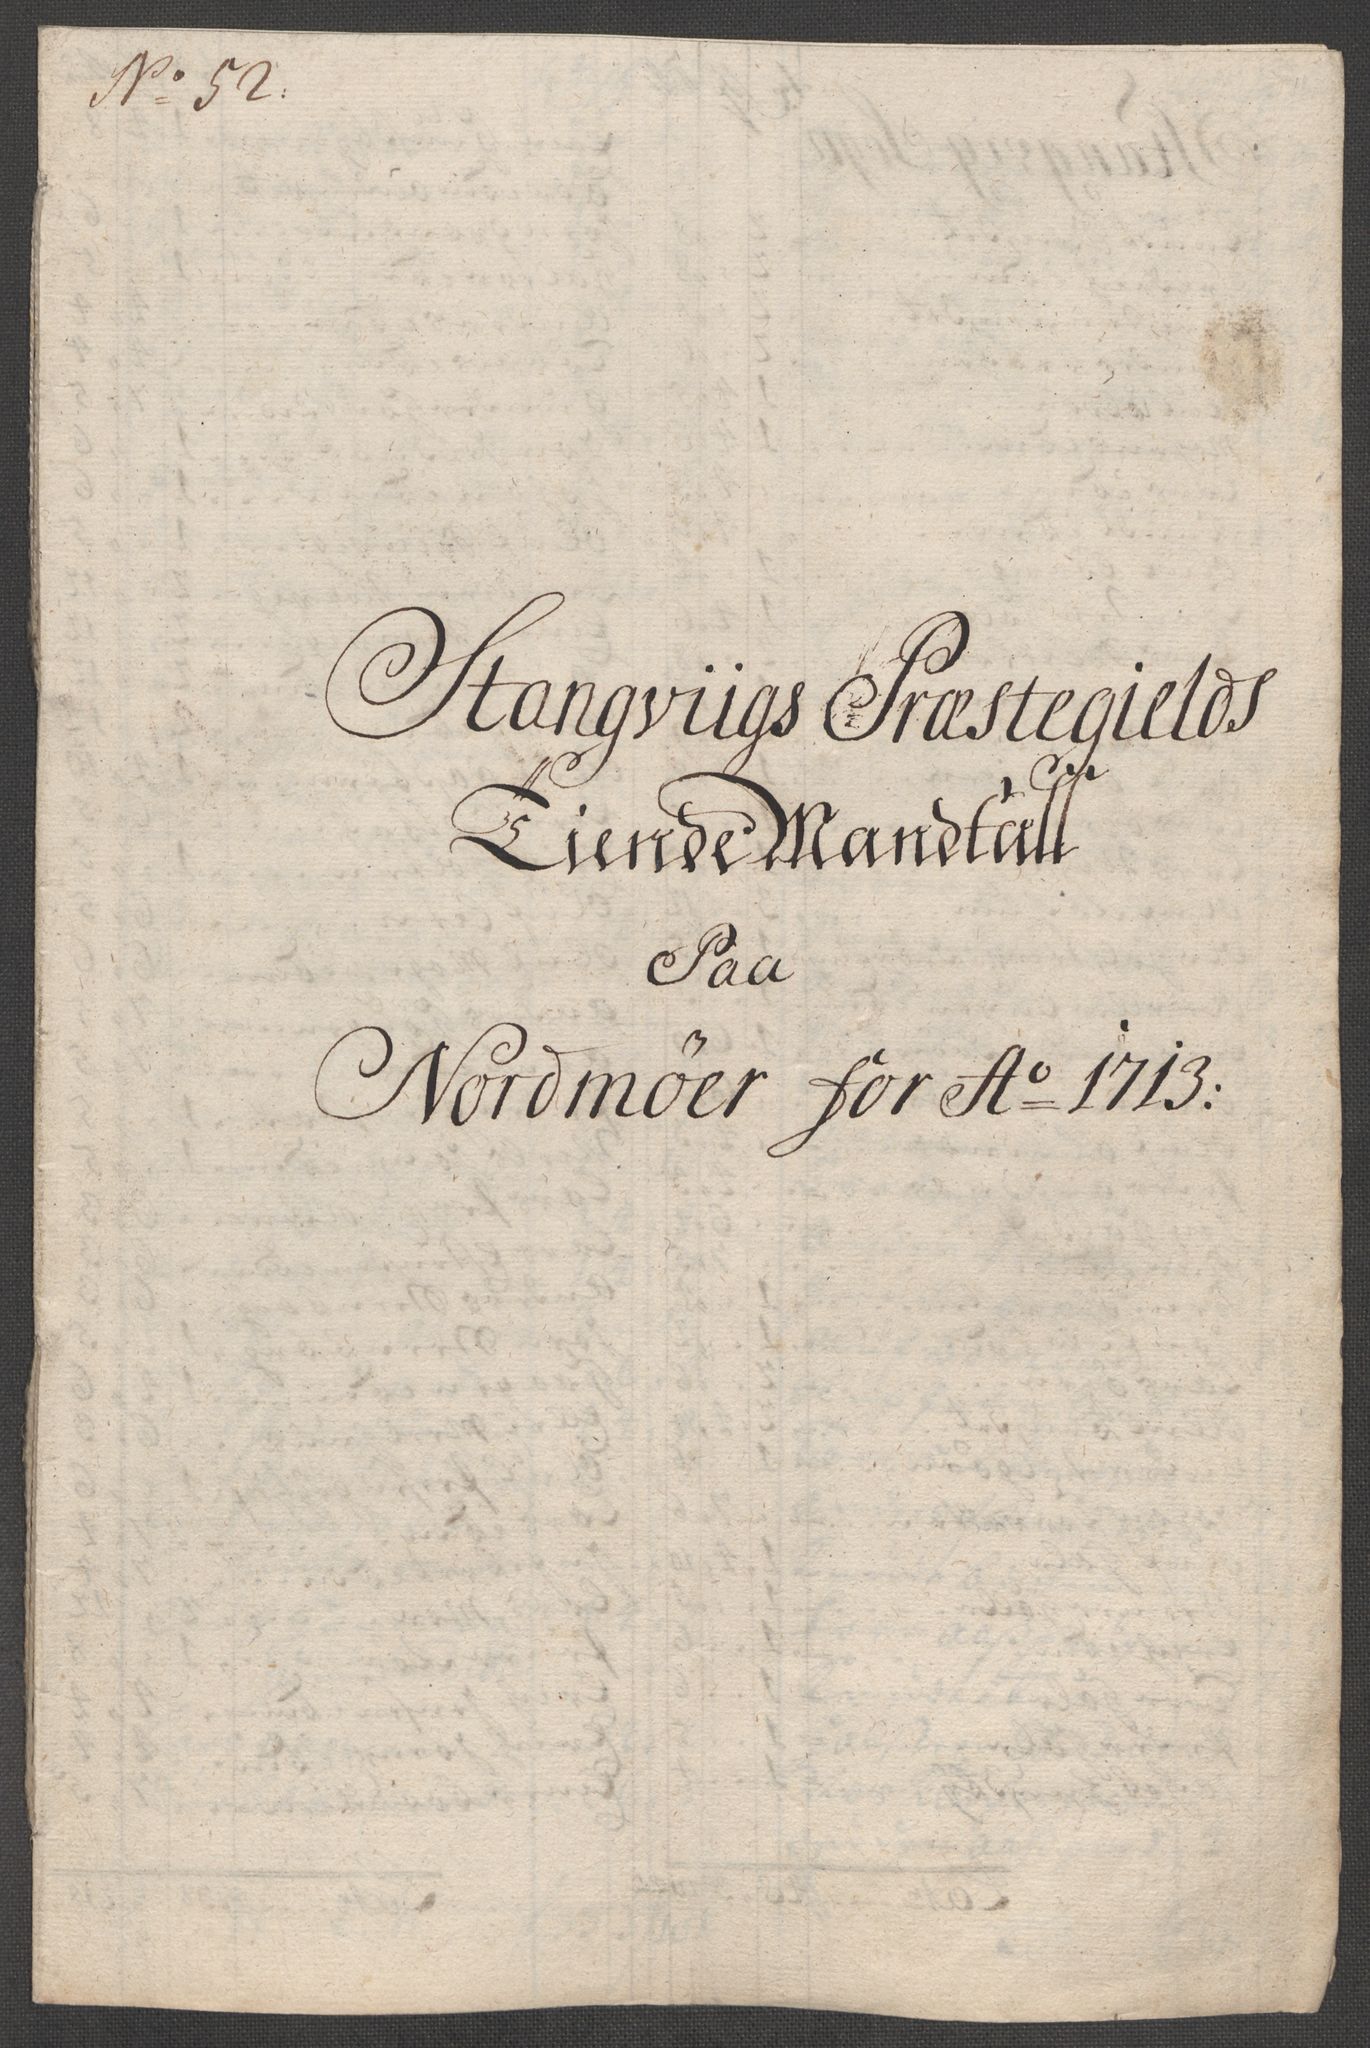 No 52.
Stangviigs Præstegields
Tiende Mandtall
Paa
Nordmöer for Ao 1713: